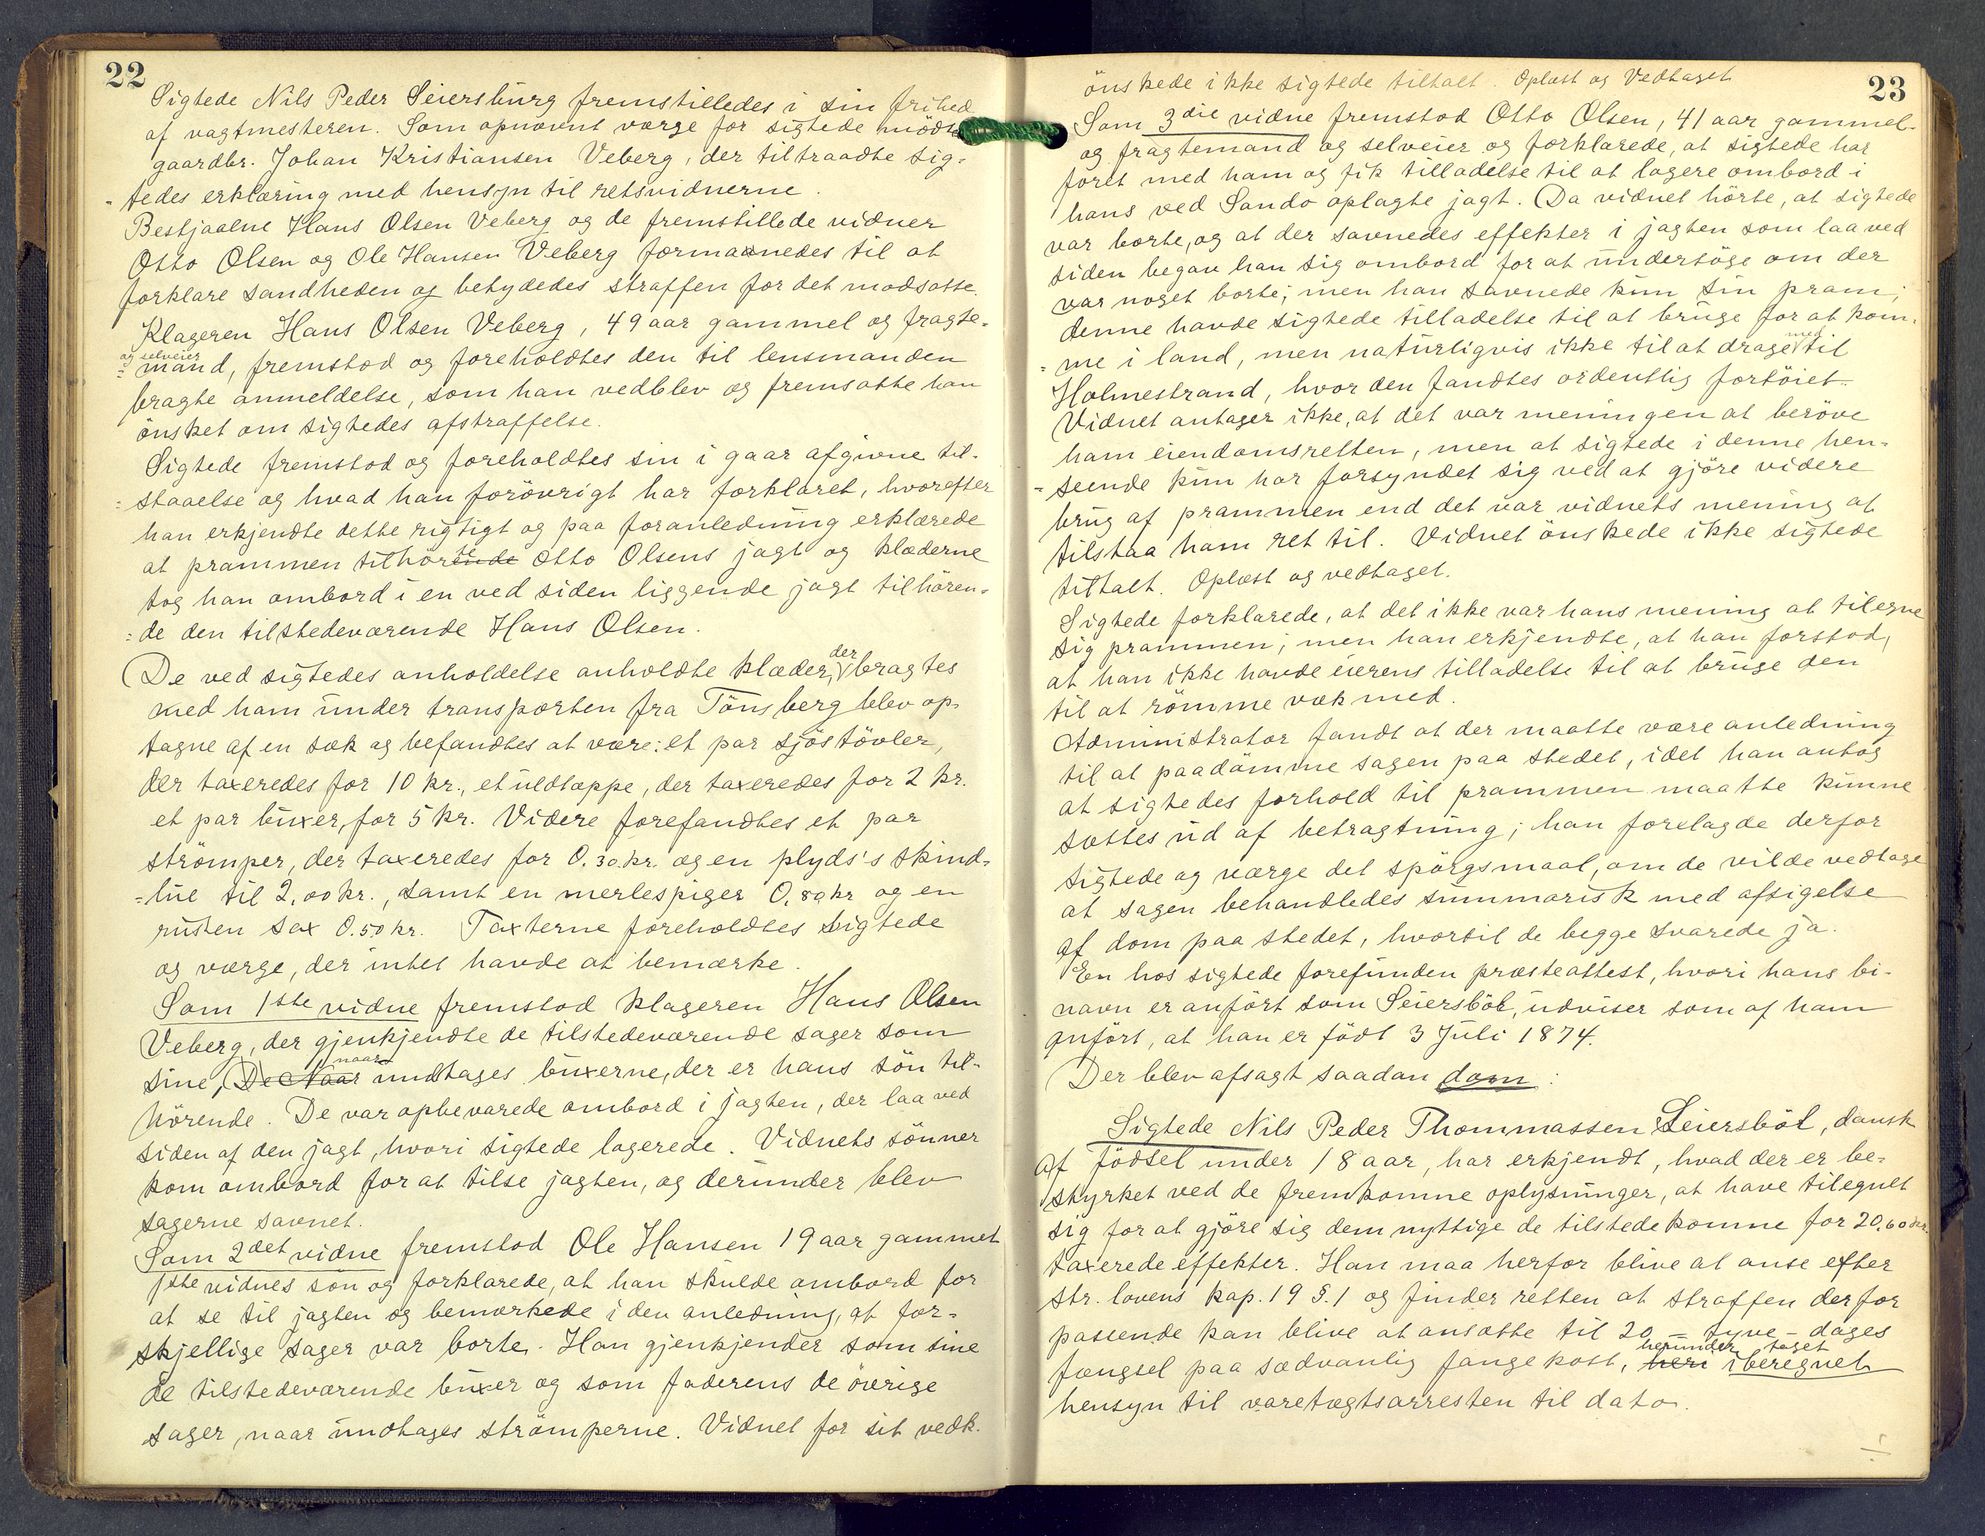 22
Sigtede Nils Peder Seiersburg fremstilledes i sin frihed
af vagtmesteren. Som opnævnt værge for sigtede mödte
gaardbr. Johan Kristiansen Veberg, der tiltraadte sig-
-tedes erklæring med hensyn til retsvidnerne.
Bestjaalne Hans Olsen Veberg og de fremstillede vidner
Otto Olsen og Ole Hansen Veberg formanedes til at
forklare sandheden og betydedes straffen for det modsatte.
Klageren Hans Olsen Veberg, 49 aar gammel og fragte-
og selveier
=mand, fremstod og foreholdtes den til lensmanden
bragte anmeldelse, som han vedblev og fremsatte han
önsket om sigtedes afstraffelse.
Sigtede fremstod og foreholdtes sin i gaar afgivne til-
=staaelse og hvad han forövrigt har forklaret, hvorefter
han erkjendte dette rigtigt og paa foranledning erklærede
at prammen tilhörte Otto Olsens jagt og klæderne
tog han ombord i en ved siden liggende jagt tilhören-
=de den tilstedeværende Hans Olsen.
De ved sigtedes anholdelse anholdte klæder, der bragtes
med ham under transporten fra Tönsberg blev op-
tagne af en sæk og befandtes at være: et par sjöstövler,
der taxeredes for 10 kr., et uldtæppe, der taxeredes for 2 kr.
et par buxer, for 5 kr. Videre forefandtes et par
strömper, der taxeredes for 0.30 kr. og en plyds's skind-
=lue til 2.00 kr., samt en merlespiger 0.80 kr og en
rusten sax 0.50 kr. Taxterne foreholdtes sigtede
og værge, der intet havde at bemærke.
Som 1ste vidne fremstod klageren Hans Olsen
Veberg, der gjenkjendte de tilstedeværende sager som
sine, De Naar naar undtages buxerne, der er hans sön til-
hörende. De var opbevarede ombord i jagten, der laa ved
siden af den jagt, hvori sigtede logerede. Vidnets sönner
kom ombord for at tilse jagten, og derunder blev
sagerne savnet.
Som 2det vidne fremstod Ole Hansen 19 aar gammel
1ste vidnes sön og forklarede, at han skulde ombord for
at se til jagten og bemærkede i den anledning, at for-
skjellige sager var borte. Han gjenkjender som sine
de tilstedeværende buxer og som faderens de övrige
sager, naar undtages strömperne. Vidnet for sit vedk.
23
önskede ikke sigtede tiltalt. Oplæst og Vedtaget
Som 3die vidne fremstod Otto Olsen, 41 aar gammel
og fragtemand og selveier og forklarede, at sigtede har
faret med ham og fik tilladelse til at logere ombord i
hans ved Sando oplagte jagt. Da vidnet hörte, at sigtede
var borte, og at der savnedes effekter i jagten som laa ved
siden begav han sig ombord for at undersöge om der
var noget borte; men han savnede kun sin pram;
denne havde sigtede tilladelse til at bruge for at kom-
=me i land, men naturligvis ikke til at drage med til
Holmestrand, hvor den fandtes ordentlig fortöiet.
Vidnet antager ikke, at det var meningen at beröve
ham eiendomsretten, men at sigtede i denne hen-
=seende kun har forsyndet sig ved at gjöre videre
brug af prammen end det var vidnets mening at
tilstaa ham ret til. Vidnet önskede ikke sigtede
tiltalt. Oplæst og vedtaget.
Sigtede forklarede, at det ikke var hans mening at tilegne
sig prammen; men han erkjendte, at han forstod,
at han ikke havde eierens tilladelse til at bruge den
til at römme væk med.
Administrator fandt at der maatte være anledning
til at paadömme sagen paa stedet, idet han antog
at sigtedes forhold til prammen maatte kunne
sættes ud af betragtning; han forelagde derfor
sigtede og værge det spörgsmaal, om de vilde vedtage
at sagen behandledes summarisk med afsigelse
af dom paa stedet, hvortil de begge svarede ja.
En hos sigtede forefunden præsteattest, hvori hans bi-
navn er anfört som Seiersböl, udviser som af ham
anfört, at han er födt 3 Juli 1874.
Der blev afsagt saadan dom:
Sigtede Nils Peder Thommassen Seiersböl, dansk
af födsel under 18 aar, har erkjendt, hvad der er be-
styrket ved de fremkomne oplysninger, at have tilegnet
sig for at gjöre sig dem nyttige de tilstedekomne for 20.60 kr.
taxerede effekter. Han maa herfor blive at anse efter
str. lovens kap. 19 §. 1 og finder retten at straffen derfor
passende kan blive at ansætte til 20 - tyve - dages
fængsel paa sædvanlig fangekost, heri herunder iberegnet taget
hensyn til varetægtsarresten til dato.